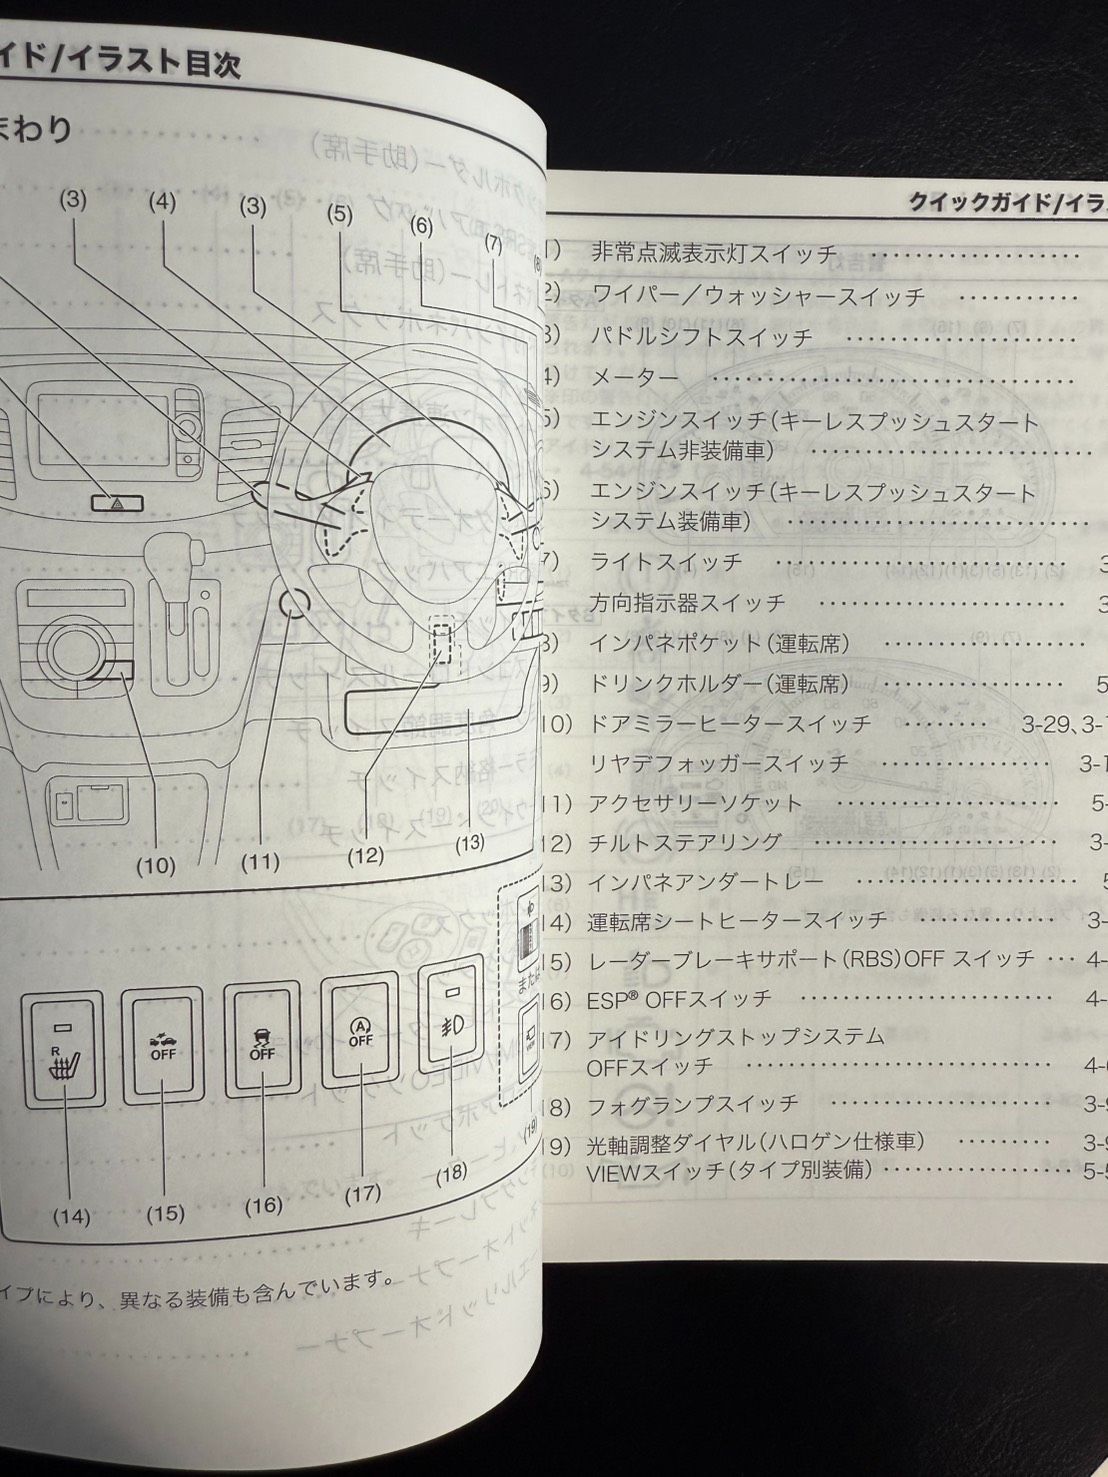 イド/イラスト目次
まわり
(3)
(4)
(3)
(5)
(6)
(7)
(10)
(11)
(12)
(13)
R
OFF
OFF
OFF
また
(14)
(15)
(16)
(17)
(18)
(19)
イプにより、異なる装備も含んでいます。
クイックガイド/イラ
1) 非常点滅表示灯スイッチ ····················
2) ワイパー／ウォッシャースイッチ ···········
3) パドルシフトスイッチ ······················
4) メーター ··································
5) エンジンスイッチ(キーレスプッシュスタート
システム非装備車) ···························
6) エンジンスイッチ(キーレスプッシュスタート
システム装備車) ·····························
7) ライトスイッチ ··························· 3
方向指示器スイッチ ······················· 3
8) インパネポケット(運転席) ··················
9) ドリンクホルダー(運転席) ················· 5
10) ドアミラーヒータースイッチ ········ 3-29、3-
リヤデフォッガースイッチ ················ 3-1
11) アクセサリーソケット ····················· 5-
12) チルトステアリング ······················· 3-
13) インパネアンダートレー ··················· 5
14) 運転席シートヒータースイッチ ············· 3-
15) レーダーブレーキサポート(RBS)OFF スイッチ ··· 4-
16) ESP® OFFスイッチ ························ 4-
17) アイドリングストップシステム
OFFスイッチ ····························· 4-
18) フォグランプスイッチ ····················· 3-9
19) 光軸調整ダイヤル(ハロゲン仕様車) ········· 3-9
VIEWスイッチ(タイプ別装備) ·················· 5-5